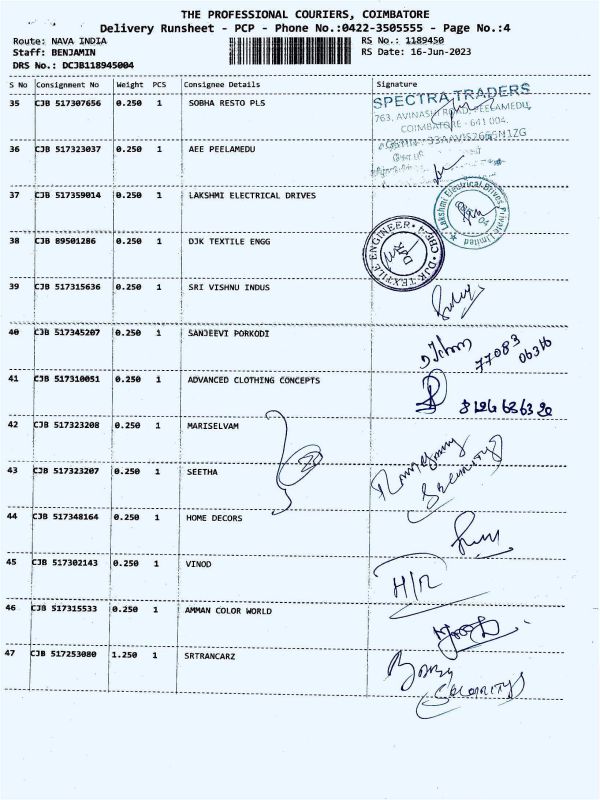 THE PROFESSIONAL COURIERS, COIMBATORE
Delivery Runsheet - PCP - Phone No.:0422-3505555 - Page No.:4
Route: NAVA INDIA RS No.: 1189450
Staff: BENJAMIN RS Date: 16-Jun-2023
DRS No.: DCJB118945004
S No Consignment No Weight PCS Consignee Details Signature
35 CJB 517307656 0.250 1 SOBHA RESTO PLS
SPECTRA TRADERS
763, AVINASHI ROAD, PEELAMEDU,
COIMBATORE - 641 004.
36 CJB 517323037 0.250 1 AEE PEELAMEDU
37 CJB 517359014 0.250 1 LAKSHMI ELECTRICAL DRIVES
Lakshmi Electrical Drives Private Limited
38 CJB 89501286 0.250 1 DJK TEXTILE ENGG
DJK TEXTILE ENGINEER CBE-4
39 CJB 517315636 0.250 1 SRI VISHNU INDUS
40 CJB 517345207 0.250 1 SANJEEVI PORKODI
77083
06316
41 CJB 517310051 0.250 1 ADVANCED CLOTHING CONCEPTS
42 CJB 517323208 0.250 1 MARISELVAM
43 CJB 517323207 0.250 1 SEETHA
Security
44 CJB 517348164 0.250 1 HOME DECORS
45 CJB 517302143 0.250 1 VINOD
H/R
46 CJB 517315533 0.250 1 AMMAN COLOR WORLD
47 CJB 517253080 1.250 1 SRTRANCARZ
Security